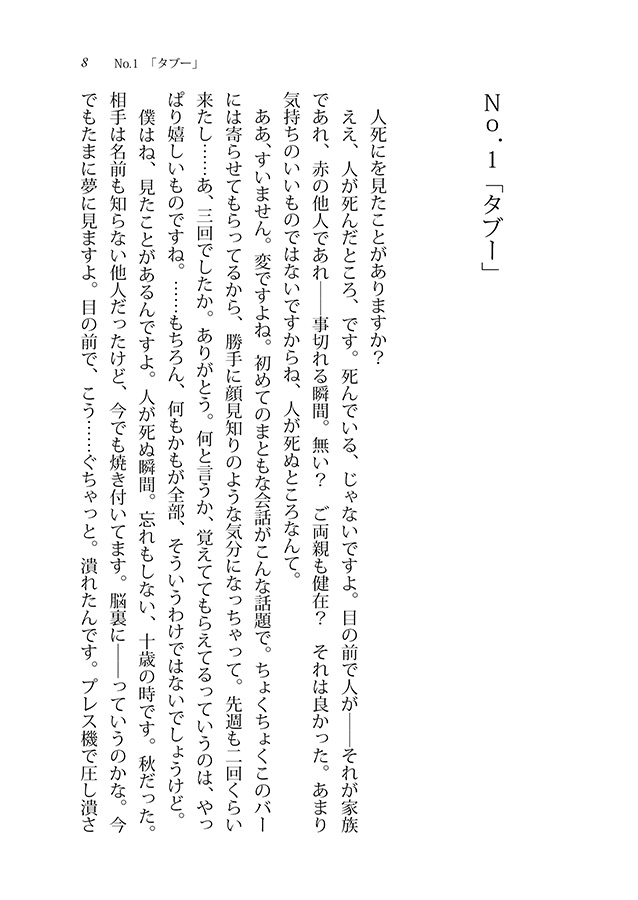 8　No.1　「タブー」
No.1「タブー」
人死にを見たことがありますか？
ええ、人が死んだところ、です。死んでいる、じゃないですよ。目の前で人が――それが家族
であれ、赤の他人であれ――事切れる瞬間。無い？　ご両親も健在？　それは良かった。あまり
気持ちのいいものではないですからね、人が死ぬところなんて。
ああ、すいません。変ですよね。初めてのまともな会話がこんな話題で。ちょくちょくこのバー
には寄らせてもらってるから、勝手に顔見知りのような気分になっちゃって。先週も二回くらい
来たし……あ、三回でしたか。ありがとう。何と言うか、覚えててもらえてるっていうのは、やっ
ぱり嬉しいものですね。……もちろん、何もかもが全部、そういうわけではないでしょうけど。
僕はね、見たことがあるんですよ。人が死ぬ瞬間。忘れもしない、十歳の時です。秋だった。
相手は名前も知らない他人だったけど、今でも焼き付いてます。脳裏に――っていうのかな。今
でもたまに夢に見ますよ。目の前で、こう……ぐちゃっと。潰れたんです。プレス機で圧し潰さ